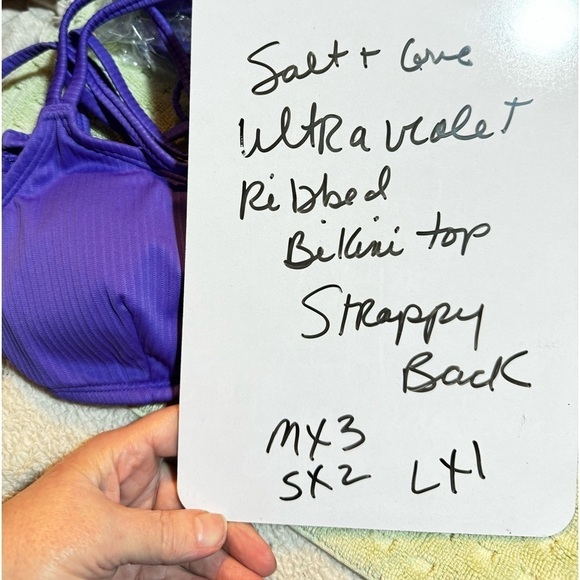 Salt + Cove
Ultra violet
Ribbed
Bikini top
Strappy
Back
M X 3
S X 2 L X 1